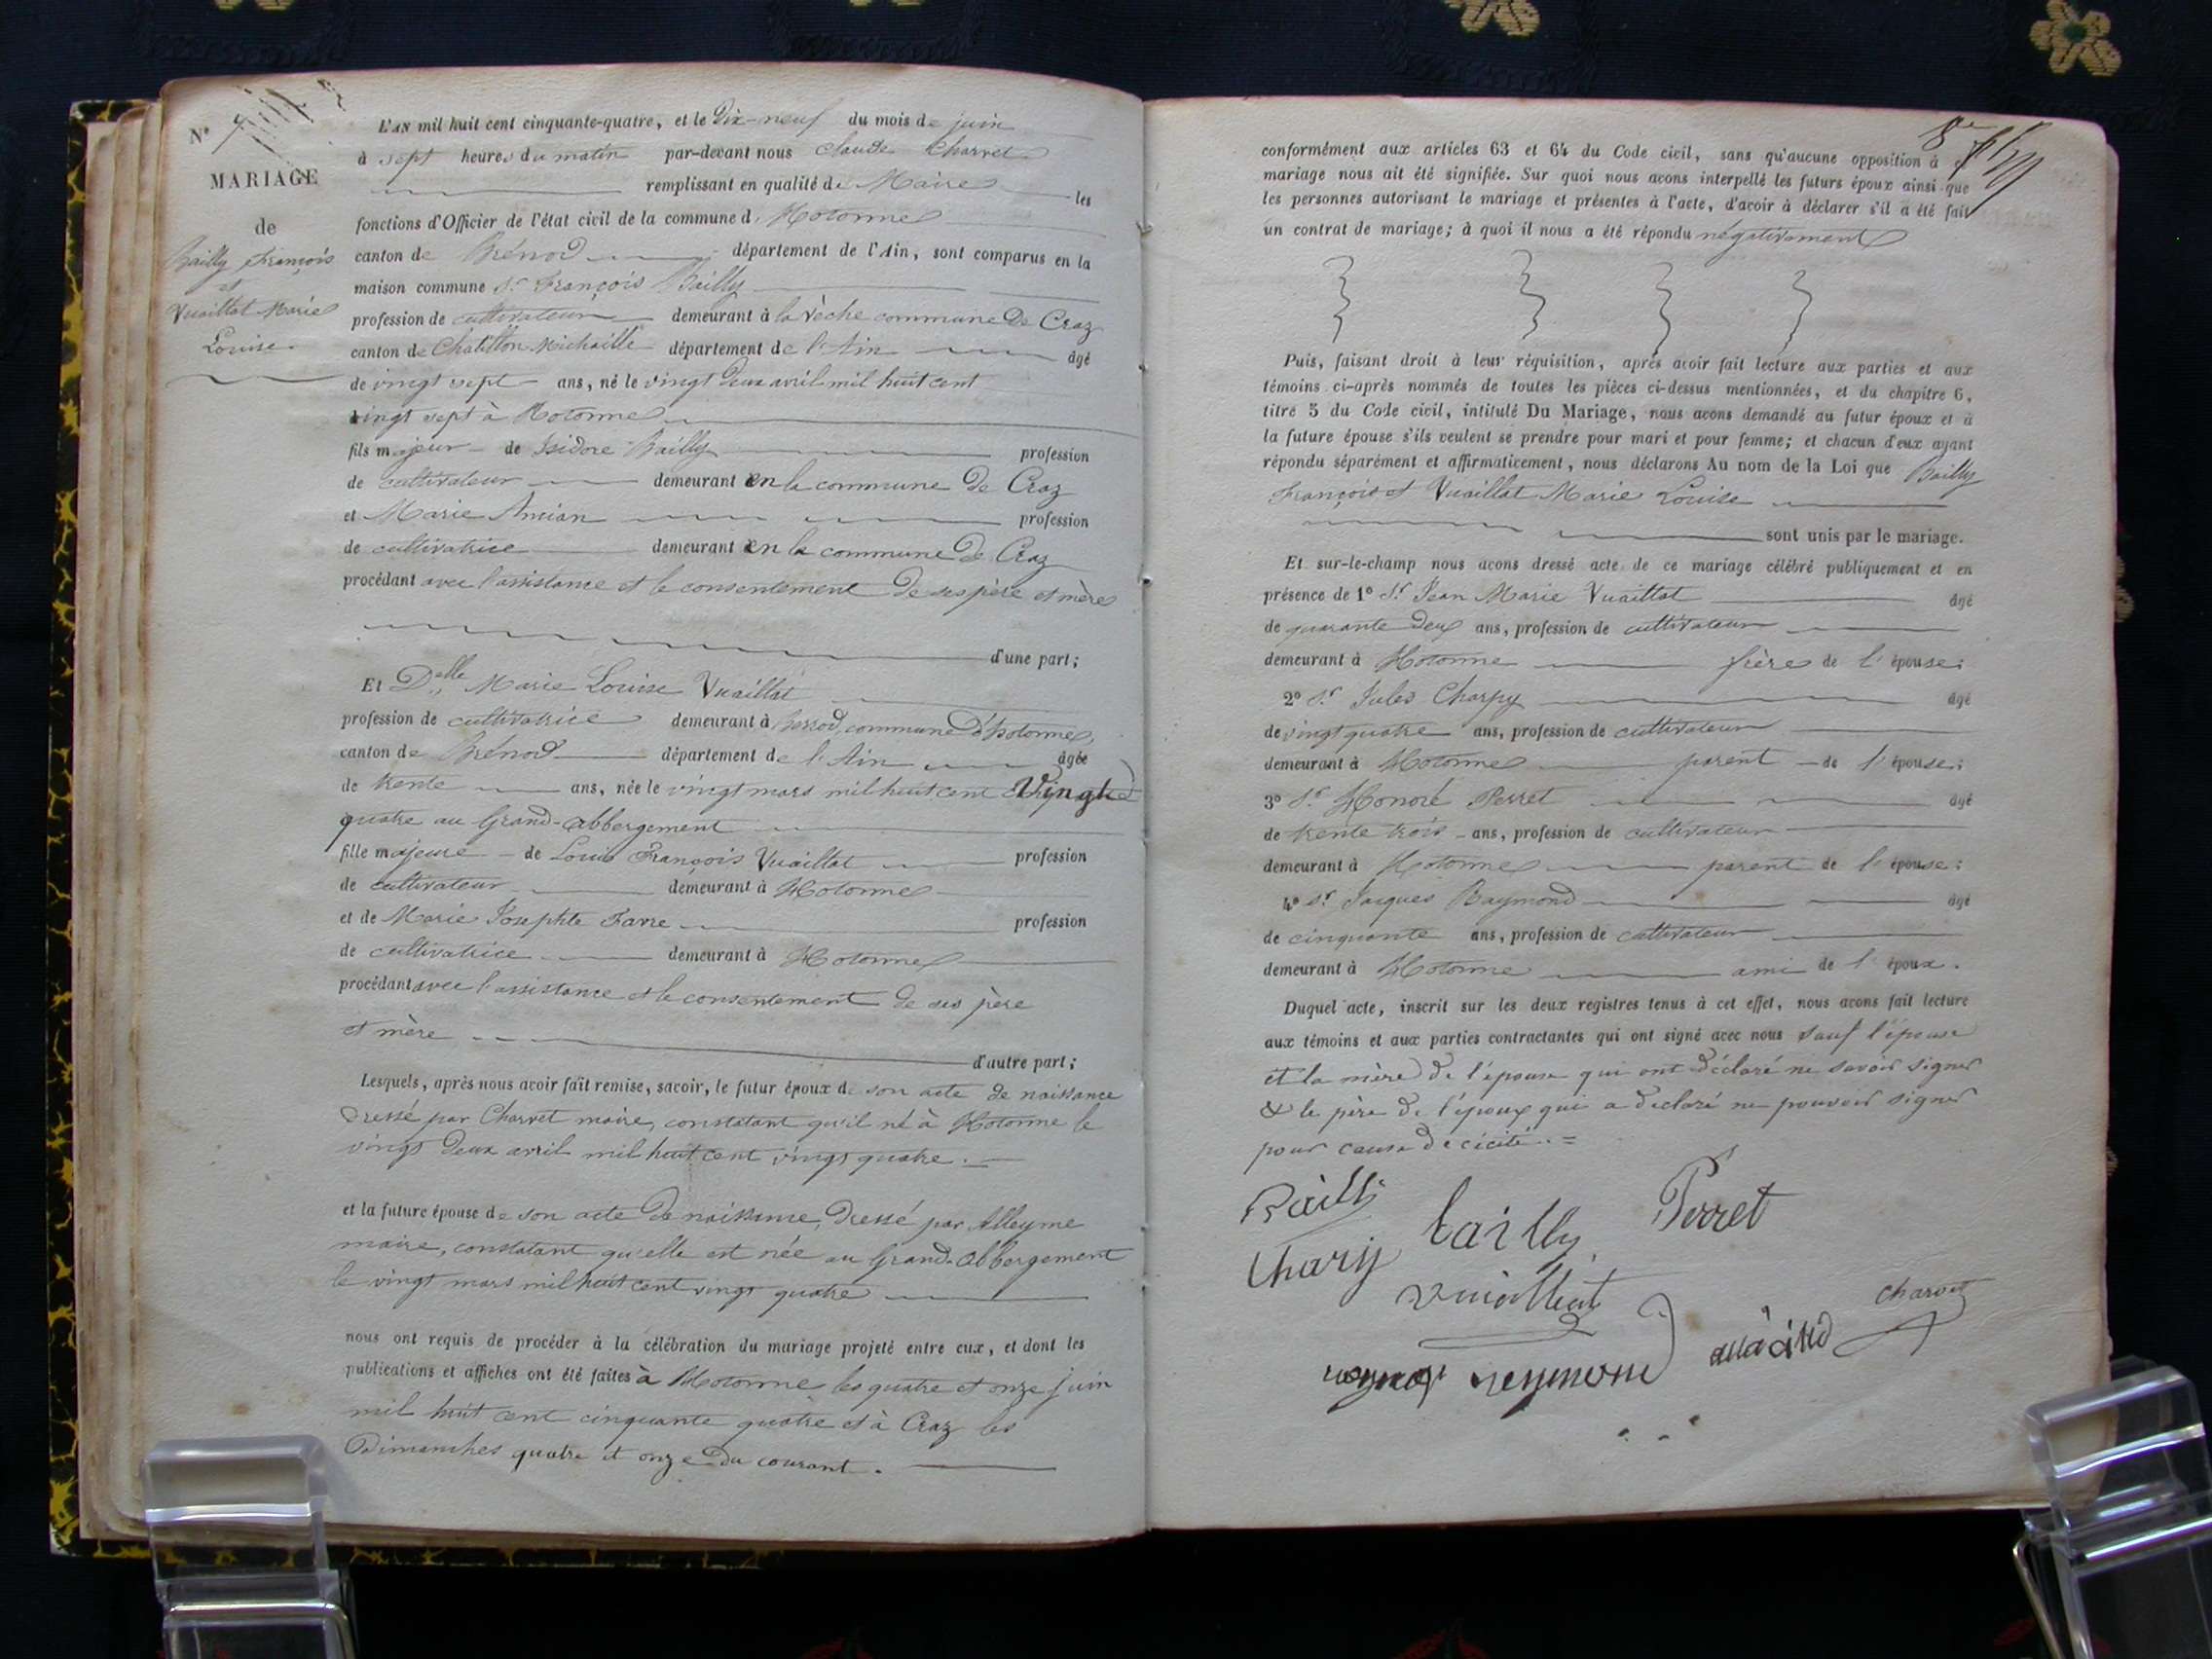 N° 7
MARIAGE
de
Bailly François
et
Vuaillat Marie
Louise.
L'AN mil huit cent cinquante-quatre, et le Dix-neuf du mois de juin
à sept heures du matin par-devant nous Claude Charvet
remplissant en qualité de Maire les
fonctions d'Officier de l'état civil de la commune d'Hotonnes
canton de Brénod département de l'Ain, sont comparus en la
maison commune Sr François Bailly
profession de cultivateur demeurant à la commune de Craz
canton de Chatillon Michaille département de l'Ain âgé
de vingt sept ans, né le vingt deux avril mil huit cent
vingt sept à Hotonnes
fils majeur de Isidore Bailly profession
de cultivateur demeurant en la commune de Craz
et Marie Ancian profession
de cultivatrice demeurant en la commune de Craz
procédant avec l'assistance et le consentement de ses père et mère
d'une part;
Et Delle Marie Louise Vuaillat
profession de cultivatrice demeurant à commune d'Hotonnes,
canton de Brénod département de l'Ain âgée
de trente ans, née le vingt mars mil huit cent Vingt
quatre au Grand-Abbergement
fille majeure de Louis François Vuaillat profession
de cultivateur demeurant à Hotonnes
et de Marie Josephte Favre profession
de cultivatrice demeurant à Hotonnes
procédant avec l'assistance et le consentement de ses père
et mère
d'autre part;
Lesquels, après nous avoir fait remise, savoir, le futur époux de son acte de naissance
dressé par Charvet maire, constatant qu'il né à Hotonne le
vingt deux avril mil huit cent vingt quatre.
et la future épouse de son acte de naissance, dressé par Alleyme
maire, constatant qu'elle est née au Grand-Abbergement
le vingt mars mil huit cent vingt quatre
nous ont requis de procéder à la célébration du mariage projeté entre eux, et dont les
publications et affiches ont été faites à Hotonne les quatre et onze juin
mil huit cent cinquante quatre et à Craz les
Dimanches quatre et onze du courant.
8e
conformément aux articles 63 et 64 du Code civil, sans qu'aucune opposition à ce
mariage nous ait été signifiée. Sur quoi nous avons interpellé les futurs époux ainsi que
les personnes autorisant le mariage et présentes à l'acte, d'avoir à déclarer s'il a été fait
un contrat de mariage; à quoi il nous a été répondu négativement
Puis, faisant droit à leur réquisition, après avoir fait lecture aux parties et aux
témoins ci-après nommés de toutes les pièces ci-dessus mentionnées, et du chapitre 6,
titre 5 du Code civil, intitulé Du Mariage, nous avons demandé au futur époux et à
la future épouse s'ils veulent se prendre pour mari et pour femme; et chacun d'eux ayant
répondu séparément et affirmativement, nous déclarons Au nom de la Loi que Bailly
François et Vuaillat Marie Louise
sont unis par le mariage.
Et sur-le-champ nous avons dressé acte de ce mariage célébré publiquement et en
présence de 1° Sr Jean Marie Vuaillat âgé
de quarante deux ans, profession de cultivateur
demeurant à Hotonne frère de l'épouse;
2° Sr Jules Charpy âgé
de vingt quatre ans, profession de cultivateur
demeurant à Hotonnes parent de l'épouse;
3° Sr Honoré Perret âgé
de trente trois ans, profession de cultivateur
demeurant à Hotonnes parent de l'épouse;
4° Sr Jacques Raymond âgé
de cinquante ans, profession de cultivateur
demeurant à Hotonne ami de l'époux.
Duquel acte, inscrit sur les deux registres tenus à cet effet, nous avons fait lecture
aux témoins et aux parties contractantes qui ont signé avec nous sauf l'épouse
et la mère de l'épouse qui ont déclaré ne savoir signer
& le père de l'époux qui a déclaré ne pouvoir signer
pour cause de cécité. =
Bailly
bailly
Perret
vuaillat
Charvet
reymond